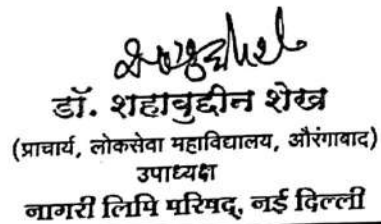 डॉ. शहाबुद्दीन शेख
(प्राचार्य, लोकसेवा महाविद्यालय, औरंगाबाद)
उपाध्यक्ष
नागरी लिपि परिषद्, नई दिल्ली